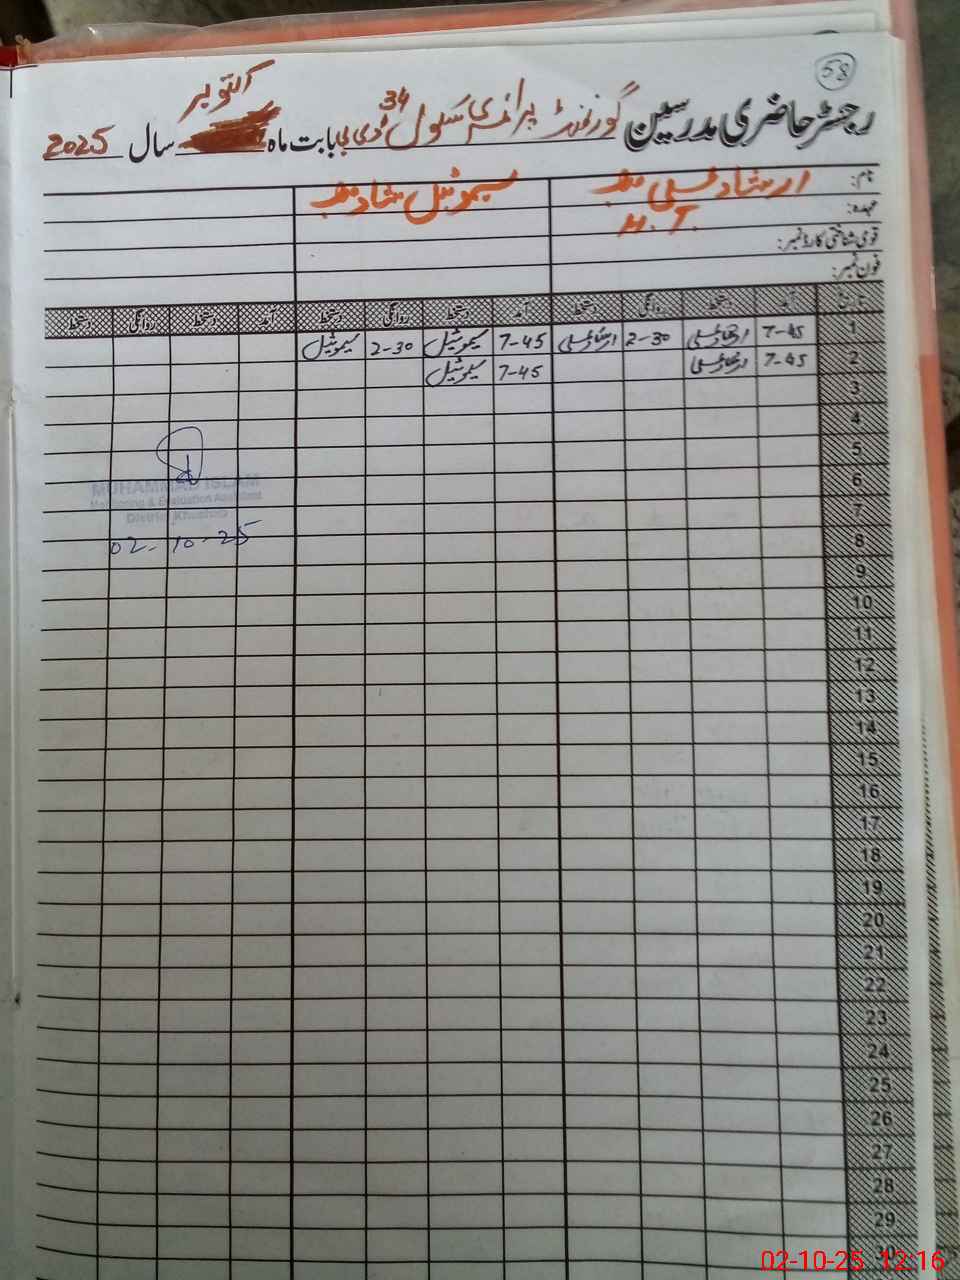 58
اکتوبر
رجسٹر حاضری مدرسین گورنمنٹ پرائمری سکول 34 ڈی بی بابت ماہ سال 2025
نام: ارشاد علی سیموئیل شاد
عہدہ: H.T.
قومی شناختی کارڈ نمبر:
فون نمبر:
تاریخ آمد دستخط روانگی دستخط آمد دستخط روانگی دستخط آمد دستخط روانگی دستخط
1 7-45 ارشاد علی 2-30 ارشاد علی 7-45 سیموئیل 2-30 سیموئیل
2 7-45 ارشاد علی 7-45 سیموئیل
3
4
5
6
7
8
9
10
11
12
13
14
15
16
17
18
19
20
21
22
23
24
25
26
27
28
29
30
MUHAMMAD ISLAM
Monitoring & Evaluation Assistant
District Khushab
02-10-25
02-10-25 12:16